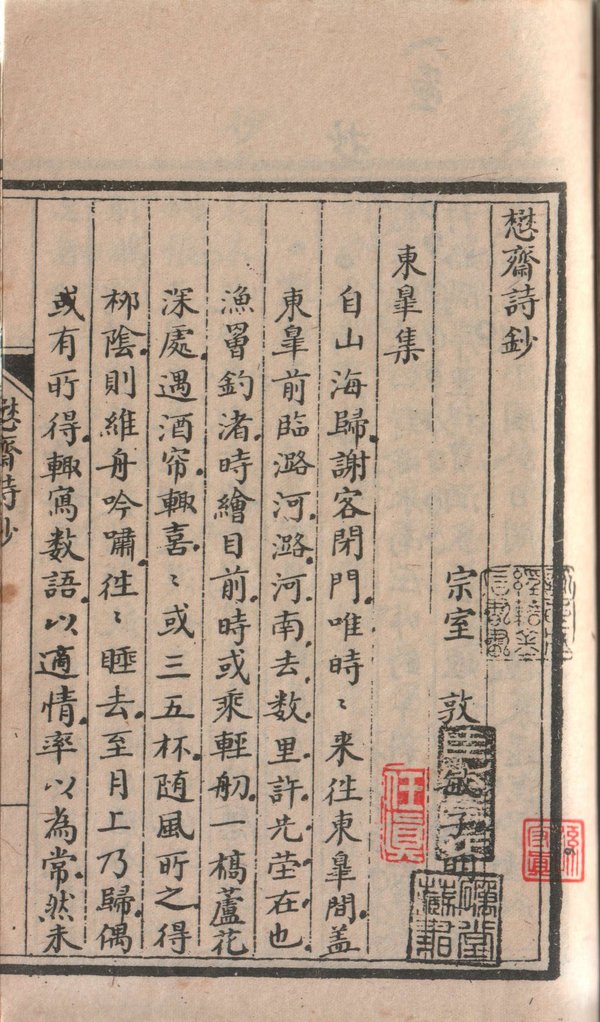 懋齋詩鈔
宗室 敦敏子明
東臯集
自山海歸謝客閉門唯時〻来徃東臯間盖
東臯前臨潞河潞河南去数里許先茔在也
漁罾釣渚時繪目前時或乘輕舠一槁蘆花
深處遇酒帘輙喜〻或三五杯随風所之得
柳陰則維舟吟嘯徃〻睡去至月上乃歸偶
或有所得輙寫数語以適情率以為常然未
懋齋詩鈔
任真